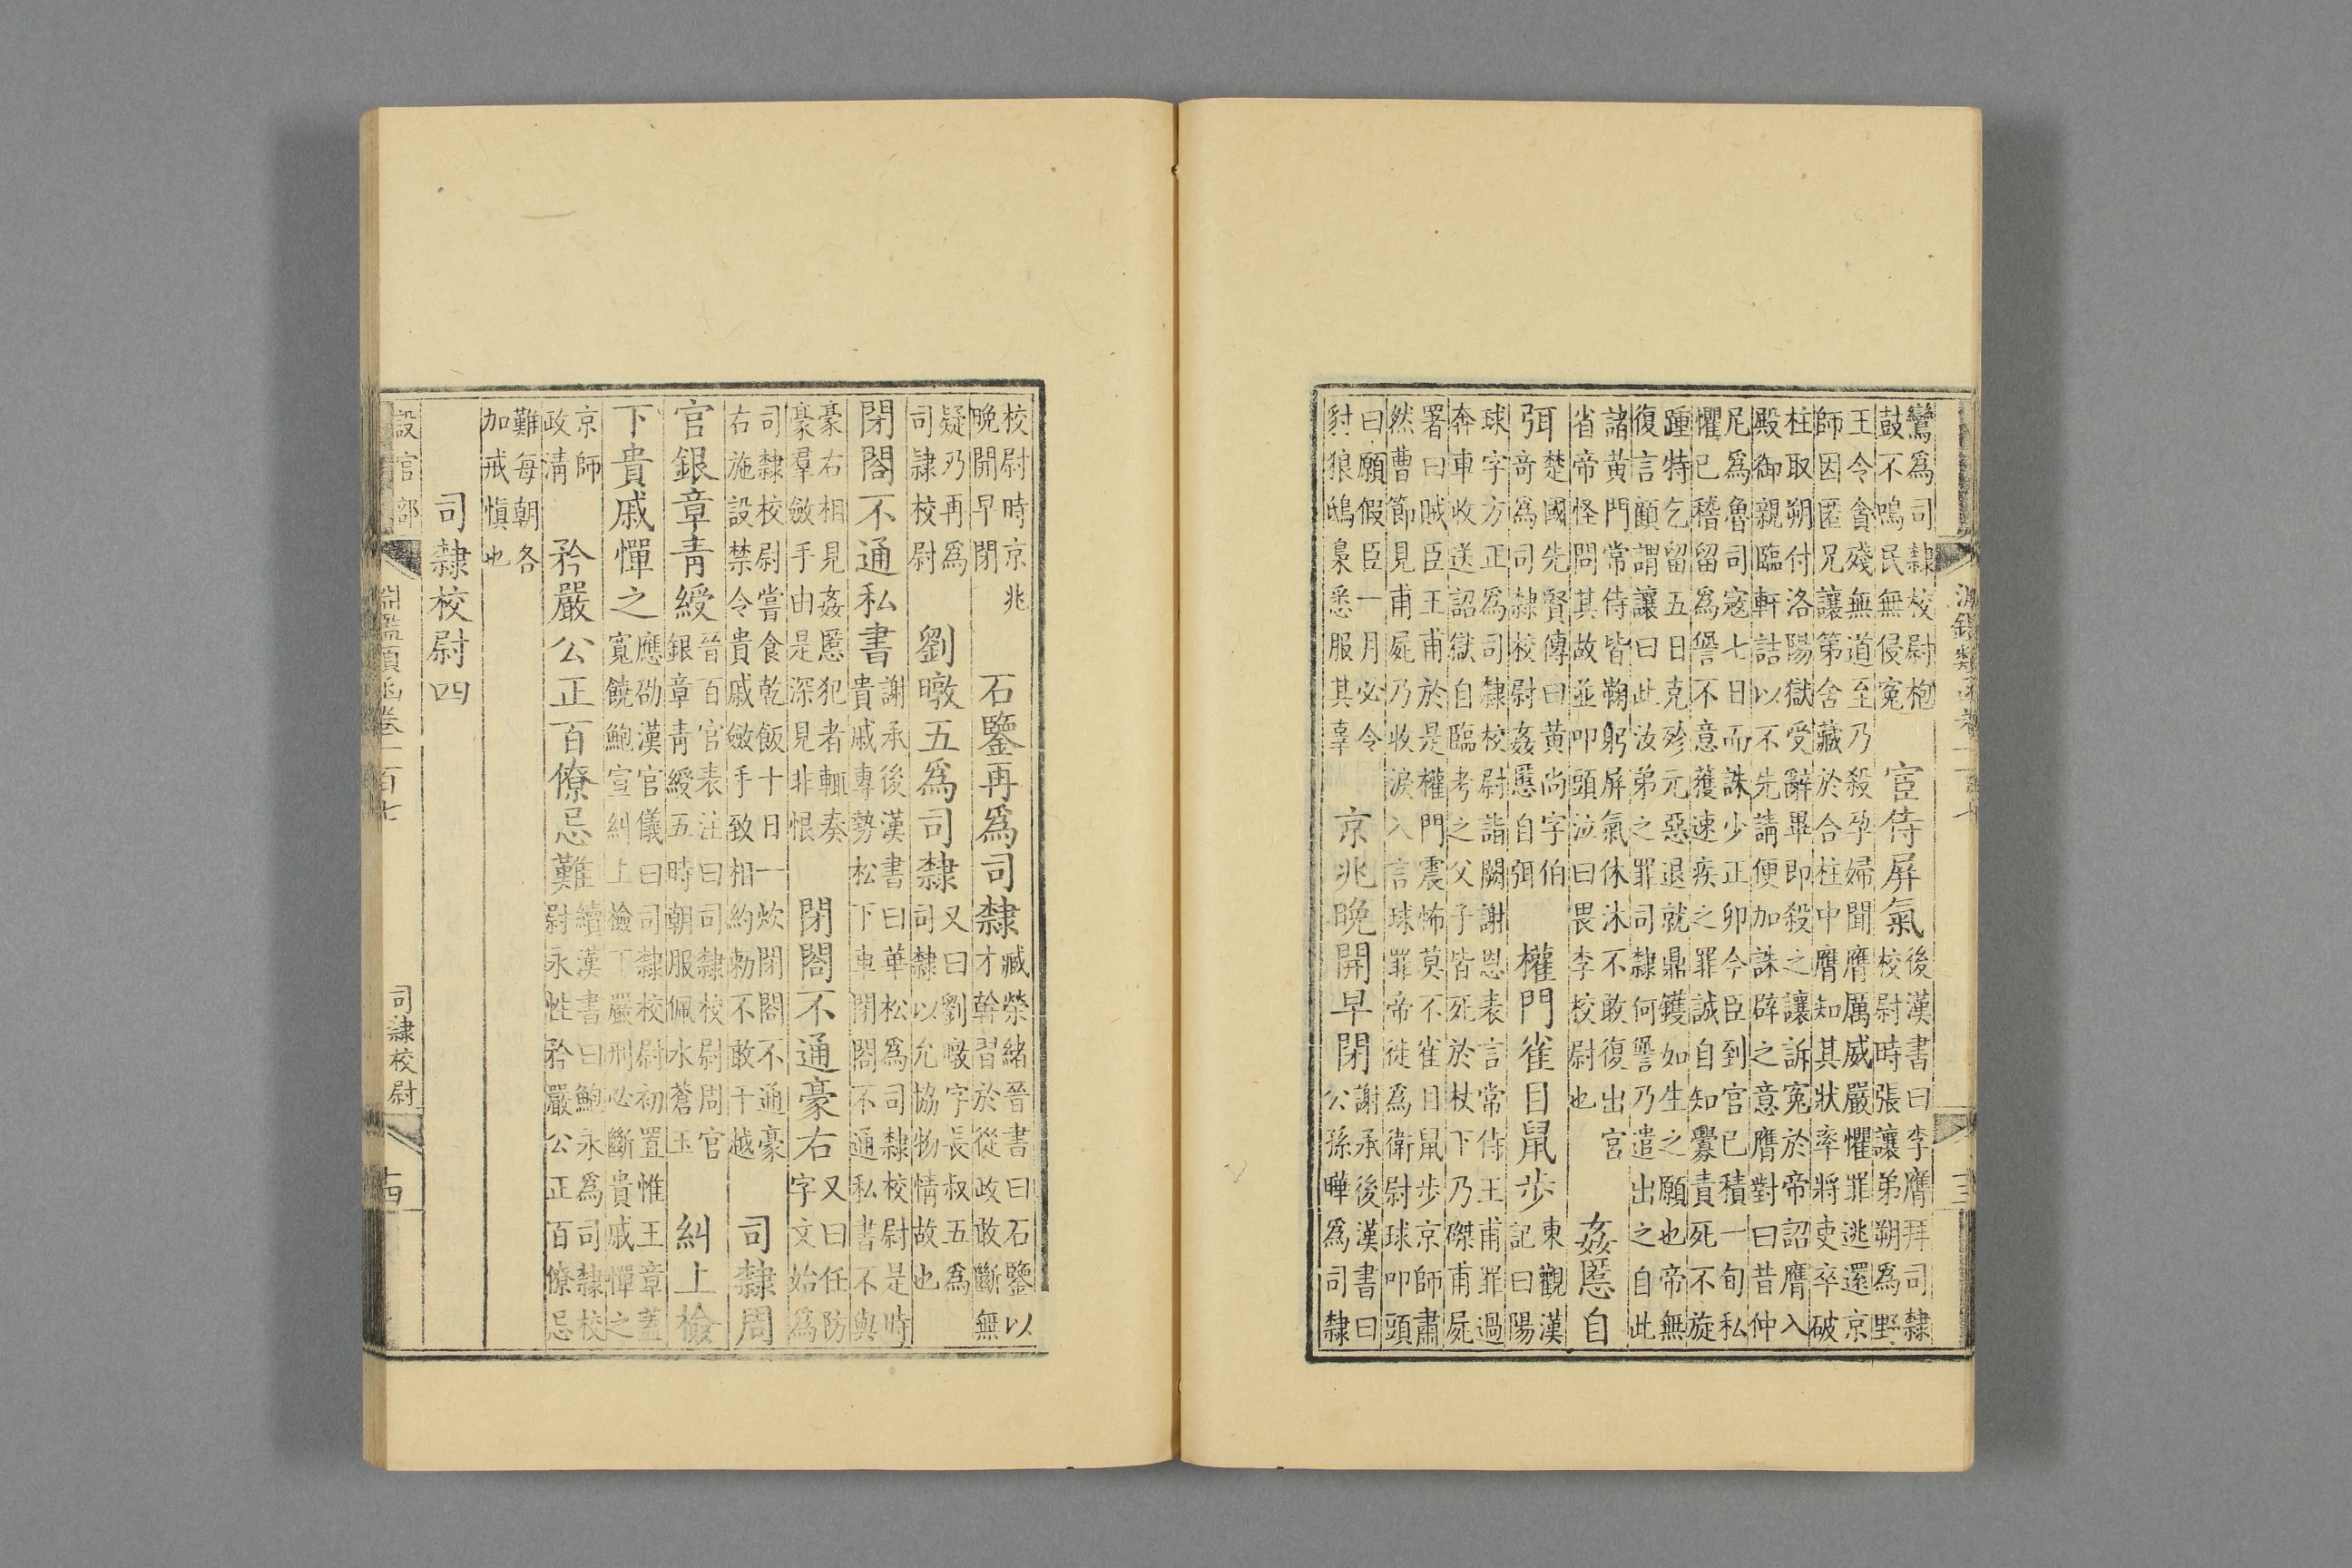 淵鑑類函卷一百七 十三
鸞爲司隸校尉枹
鼓不鳴民無侵冤
宦侍屏氣
後漢書曰李膺拜司隸
校尉時張讓弟朔爲野
王令貪殘無道至乃殺孕婦聞膺厲威嚴懼罪逃還京
師因匿兄讓第舍藏於合柱中膺知其狀率將吏卒破
柱取朔付洛陽獄受辭畢即殺之讓訴冤於帝詔膺入
殿御親臨軒詰以不先請便加誅辟之意膺對曰昔仲
尼爲魯司寇七日而誅少正卯今臣到官已積一旬私
懼已稽留爲諐不意獲速疾之罪誠自知釁責死不旋
踵特乞留五日克殄元惡退就鼎鑊如生之願也帝無
復言顧謂讓曰此汝弟之罪司隸何諐乃遣出之自此
諸黃門常侍皆鞠躬屏氣休沐不敢復出宮
省帝怪問其故並叩頭泣曰畏李校尉也
姦慝自
弭
楚國先賢傳曰黃尚字伯
奇爲司隸校尉姦慝自弭
權門雀目鼠步
東觀漢
記曰陽
球字方正爲司隸校尉詣闕謝恩表言常侍王甫罪過
奔車收送詔獄自臨考之父子皆死於杖下乃磔甫屍
署曰賊臣王甫於是權門震怖莫不雀目鼠步京師肅
然曹節見甫屍乃收淚入言球罪帝徙爲衛尉球叩頭
曰願假臣一月必令
豺狼鴟梟悉服其辜
京兆晚開早閉
謝承後漢書曰
公孫曄爲司隸
校尉時京兆
晚開早閉
石鑒再爲司隸
臧榮緒晉書曰石鑒以
才幹習於從政敢斷無
疑乃再爲
司隸校尉
劉暾五爲司隸
又曰劉暾字長叔五爲
司隸以允協物情故也
閉閤不通私書
謝承後漢書曰華松爲司隸校尉是時
貴戚專勢松下車閉閤不通私書不與
豪右相見姦慝犯者輒奏
豪羣斂手由是深見非恨
閉閤不通豪右
又曰任防
字文始爲
司隸校尉嘗食乾飯十日一炊閉閤不通豪
右施設禁令貴戚斂手致相約勑不敢干越
司隸周
官銀章青綬
晉百官表注曰司隸校尉周官
銀章青綬五時朝服佩水蒼玉
糾上檢
下貴戚憚之
應劭漢官儀曰司隸校尉初置惟王章蓋
寬饒鮑宣糾上檢下嚴刑必斷貴戚憚之
京師
政淸
矜嚴公正百僚忌難
續漢書曰鮑永爲司隸校
尉永性矜嚴公正百僚忌
難每朝各
加戒愼也
司隸校尉四
設官部 淵鑑類函卷一百七 司隸校尉 十四